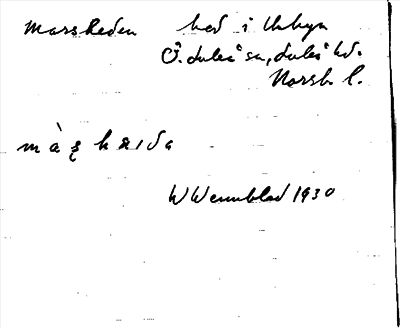 Marsheden hed i Ubbyn
Ö. Luleå sn, Luleå hd.
Norrb. l.
màʂhæıda
W Wennblad 1930